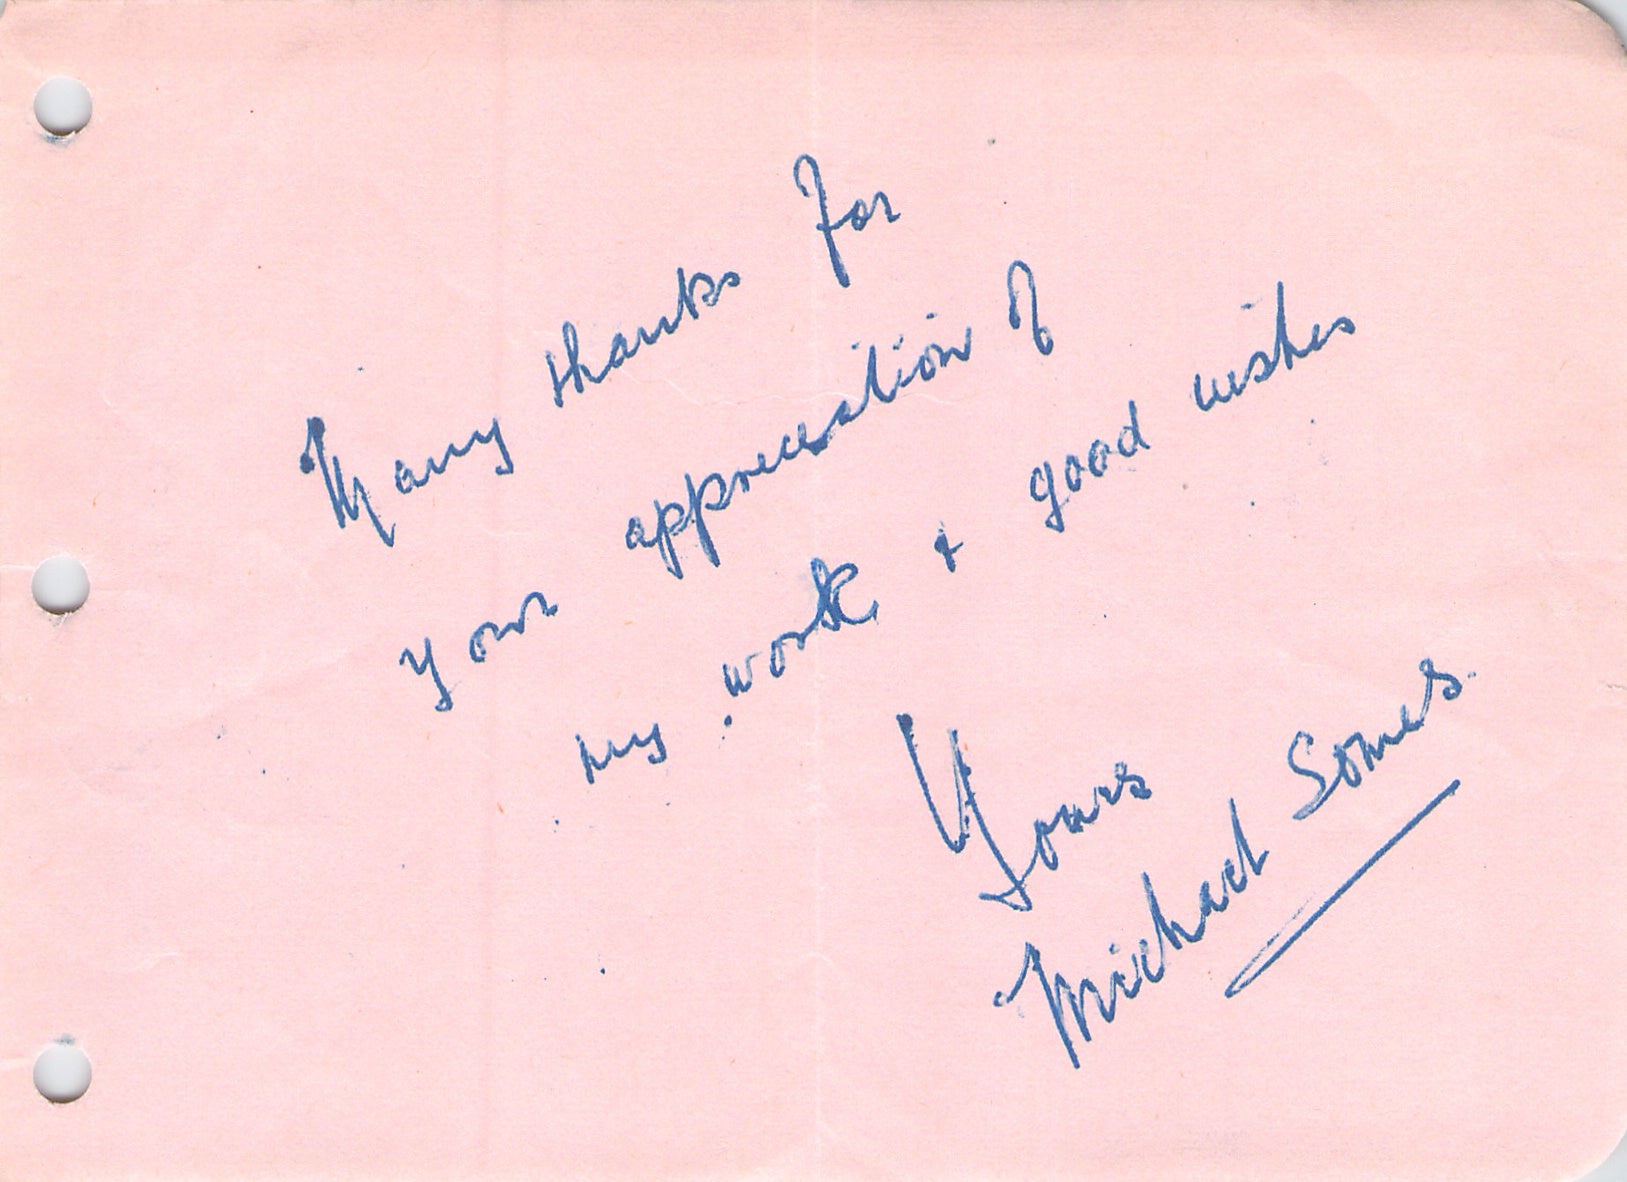 Many thanks for
your appreciation of
my work & good wishes
Yours
Michael Somes.